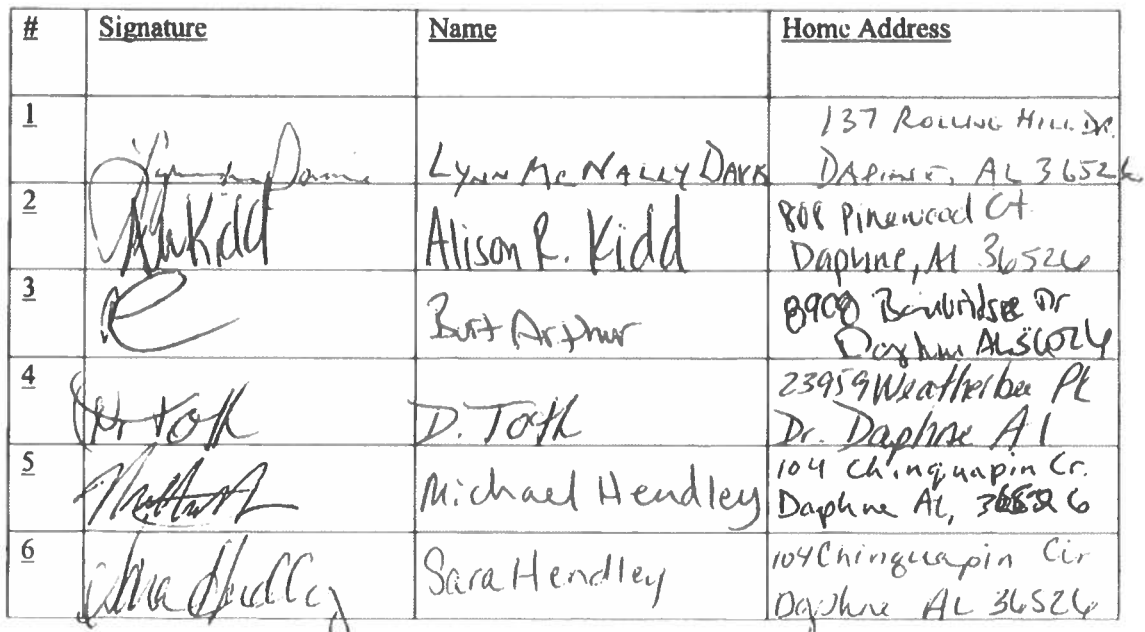 # Signature Name Home Address
1 Lynn McNally Davis 137 Rolling Hill Dr.
Daphne, AL 36526
2 Kidd Alison R. Kidd 808 Pinewood Ct
Daphne, Al 36526
3 Burt Arthur 8908 Dr
Daphne AL 36526
4 Toth D. Toth 23959 Weatherbee Pk
Dr. Daphne Al
5 Michael Hendley 104 Chinquapin Cr.
Daphne AL, 36526
6 Sara Hendley Sara Hendley 104 Chinquapin Cir
Daphne AL 36526